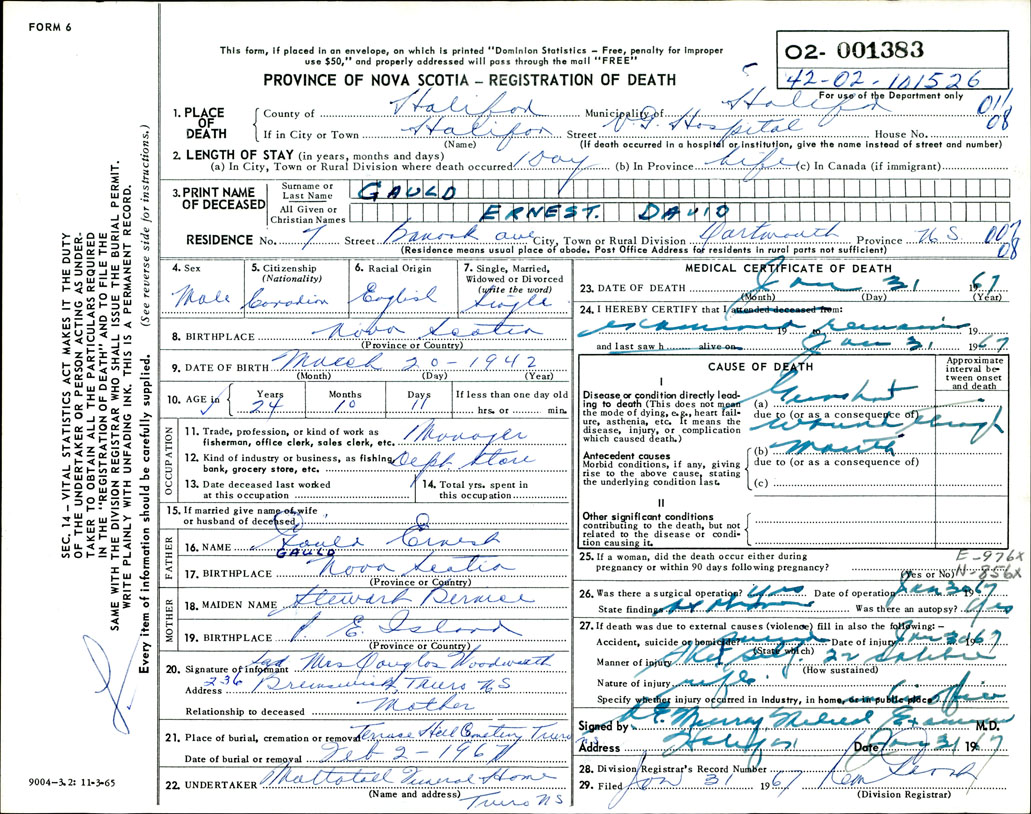 FORM 6
This form, if placed in an envelope, on which is printed "Dominion Statistics – Free, penalty for improper
use $50," and properly addressed will pass through the mail "FREE"
O2- 001383
42-02-101526
For use of the Department only
PROVINCE OF NOVA SCOTIA – REGISTRATION OF DEATH
011
08
1. PLACE OF DEATH
County of Halifax Municipality of Halifax
If in City or Town Halifax Street V.G. Hospital House No.
(Name) (If death occurred in a hospital or institution, give the name instead of street and number)
2. LENGTH OF STAY (in years, months and days)
(a) In City, Town or Rural Division where death occurred 1 Day (b) In Province life (c) In Canada (if immigrant)
3. PRINT NAME OF DECEASED
Surname or Last Name GAULD
All Given or Christian Names ERNEST. DAVID
RESIDENCE No. 7 Street Banook ave City, Town or Rural Division Dartmouth Province N S
007
08
(Residence means usual place of abode. Post Office Address for residents in rural parts not sufficient)
4. Sex Male
5. Citizenship (Nationality) Canadian
6. Racial Origin English
7. Single, Married, Widowed or Divorced (write the word) Single
8. BIRTHPLACE Nova Scotia
(Province or Country)
9. DATE OF BIRTH March 20 - 1942
(Month) (Day) (Year)
10. AGE in Years 24 Months 10 Days 11 If less than one day old hrs. or min.
OCCUPATION
11. Trade, profession, or kind of work as fisherman, office clerk, sales clerk, etc. Manager
12. Kind of industry or business, as fishing, bank, grocery store, etc. Dept Store
13. Date deceased last worked at this occupation
14. Total yrs. spent in this occupation
15. If married give name of wife or husband of deceased
FATHER
16. NAME Gauld Ernest
GAULD
17. BIRTHPLACE Nova Scotia
(Province or Country)
MOTHER
18. MAIDEN NAME Stewart Bernice
19. BIRTHPLACE P. E. Island
(Province or Country)
20. Signature of informant Mrs Douglas Woodworth
Address 236 Brunswick, Truro N S
Relationship to deceased Mother
21. Place of burial, cremation or removal Terrace Hill Cemetery, Truro
Date of burial or removal Feb 2 - 1967
22. UNDERTAKER Mattatall Funeral Home
(Name and address) Truro NS
MEDICAL CERTIFICATE OF DEATH
23. DATE OF DEATH Jan 31 1967
(Month) (Day) (Year)
24. I HEREBY CERTIFY that I attended deceased from:
examined 19 to remains 19
and last saw h alive on Jan 31 1967
CAUSE OF DEATH
Approximate interval between onset and death
I
Disease or condition directly leading to death (This does not mean the mode of dying, e.g., heart failure, asthenia, etc. It means the disease, injury, or complication which caused death.)
(a) Gunshot
due to (or as a consequence of)
wound through
Antecedent causes
Morbid conditions, if any, giving rise to the above cause, stating the underlying condition last.
(b) mouth
due to (or as a consequence of)
(c)
II
Other significant conditions contributing to the death, but not related to the disease or condition causing it.
25. If a woman, did the death occur either during pregnancy or within 90 days following pregnancy?
(Yes or No)
E-976X
N-856X
26. Was there a surgical operation? Yes Date of operation Jan 30 1967
State findings Was there an autopsy? Yes
27. If death was due to external causes (violence) fill in also the following:–
Accident, suicide or homicide? Date of injury Jan 30 1967
(State which)
Manner of injury Shot self 22 calibre
(How sustained)
Nature of injury rifle.
Specify whether injury occurred in Industry, in home, or in public place office
Signed by Murray Medical Examiner M.D.
Address Halifax Date Jan 31 1967
28. Division Registrar's Record Number
29. Filed Jan 31 1967
(Division Registrar)
SEC. 14 – VITAL STATISTICS ACT MAKES IT THE DUTY
OF THE UNDERTAKER OR PERSON ACTING AS UNDER-
TAKER TO OBTAIN ALL THE PARTICULARS REQUIRED
IN THE "REGISTRATION OF DEATH" AND TO FILE THE
SAME WITH THE DIVISION REGISTRAR WHO SHALL ISSUE THE BURIAL PERMIT.
WRITE PLAINLY WITH UNFADING INK. THIS IS A PERMANENT RECORD.
Every item of information should be carefully supplied. (See reverse side for instructions.)
9004–3.2: 11-3-65